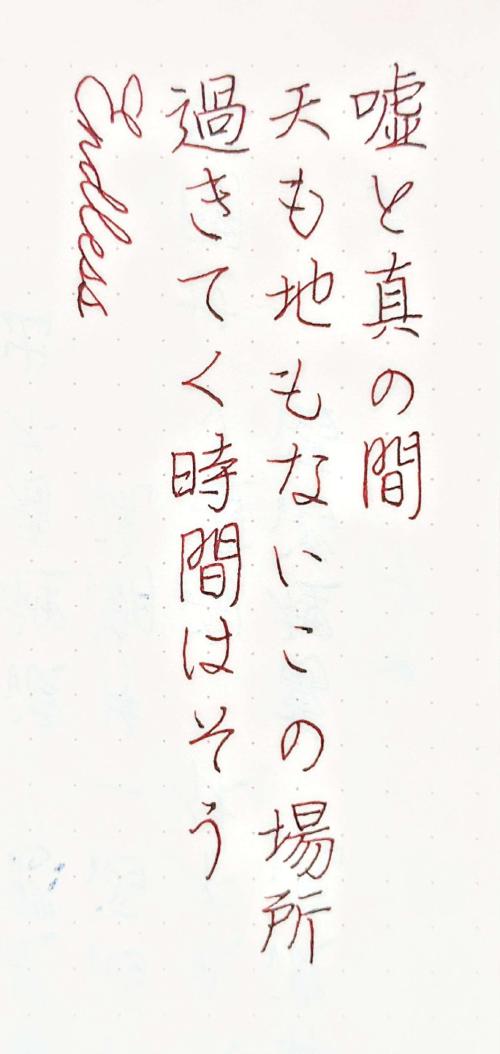 嘘と真の間
天も地もないこの場所
過きてく時間はそう
Endless